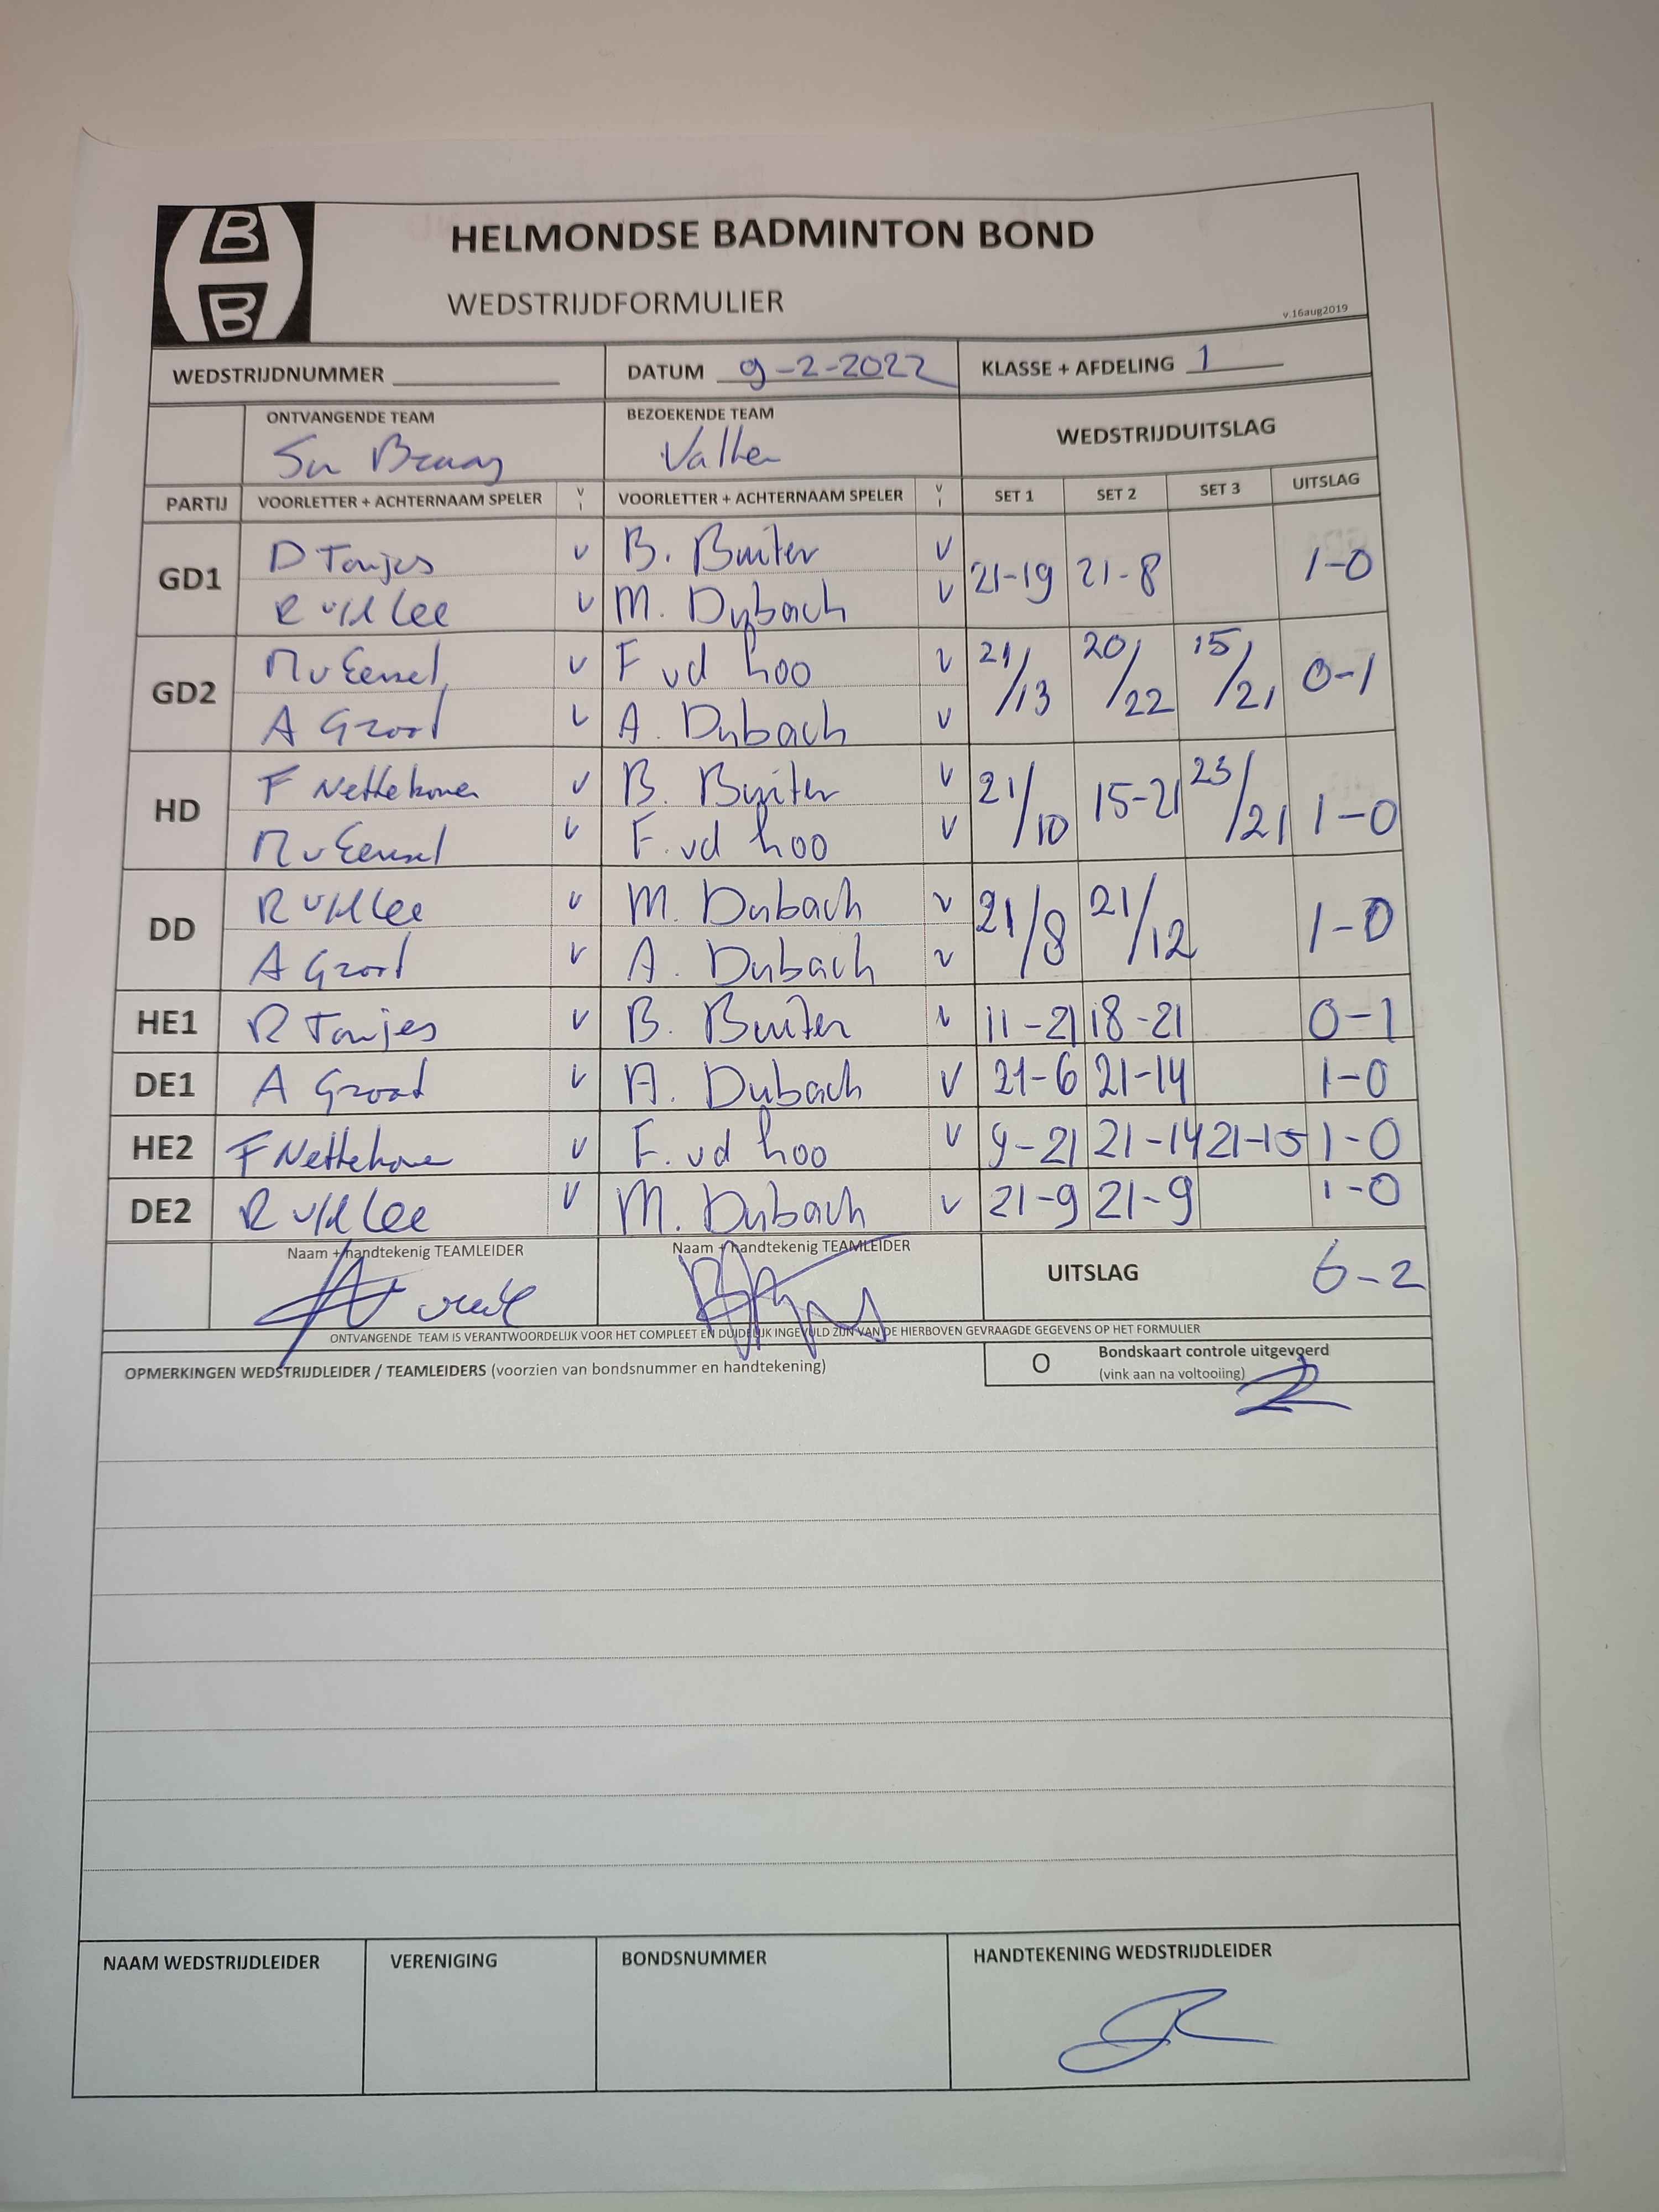 B
B
HELMONDSE BADMINTON BOND
WEDSTRIJDFORMULIER
v.16aug2019
WEDSTRIJDNUMMER DATUM 9-2-2022 KLASSE + AFDELING 1
ONTVANGENDE TEAM BEZOEKENDE TEAM WEDSTRIJDUITSLAG
PARTIJ VOORLETTER + ACHTERNAAM SPELER V I VOORLETTER + ACHTERNAAM SPELER V I SET 1 SET 2 SET 3 UITSLAG
GD1 D Tonjes v B. Buiter v 21-19 21-8 1-0
R v/d Lee v M. Dubach v
GD2 M v Eensel v F vd hoo v 21/13 20/22 15/21 0-1
A Groot v A. Dubach v
HD F Nettekoven v B. Buiter v 21/10 15-21 23/21 1-0
M v Eensel v F. vd hoo v
DD R v/d Lee v M. Dubach v 21/8 21/12 1-0
A Groot v A. Dubach v
HE1 R Tonjes v B. Buiter v 11-21 18-21 0-1
DE1 A Groot v A. Dubach v 21-6 21-14 1-0
HE2 F Nettekoven v F. vd hoo v 9-21 21-14 21-15 1-0
DE2 R v/d Lee v M. Dubach v 21-9 21-9 1-0
Naam + handtekenig TEAMLEIDER Naam + handtekenig TEAMLEIDER UITSLAG 6-2
ONTVANGENDE TEAM IS VERANTWOORDELIJK VOOR HET COMPLEET EN DUIDELIJK INGEVULD ZIJN VAN DE HIERBOVEN GEVRAAGDE GEGEVENS OP HET FORMULIER
OPMERKINGEN WEDSTRIJDLEIDER / TEAMLEIDERS (voorzien van bondsnummer en handtekening) O Bondskaart controle uitgevoerd
(vink aan na voltooiing)
NAAM WEDSTRIJDLEIDER VERENIGING BONDSNUMMER HANDTEKENING WEDSTRIJDLEIDER